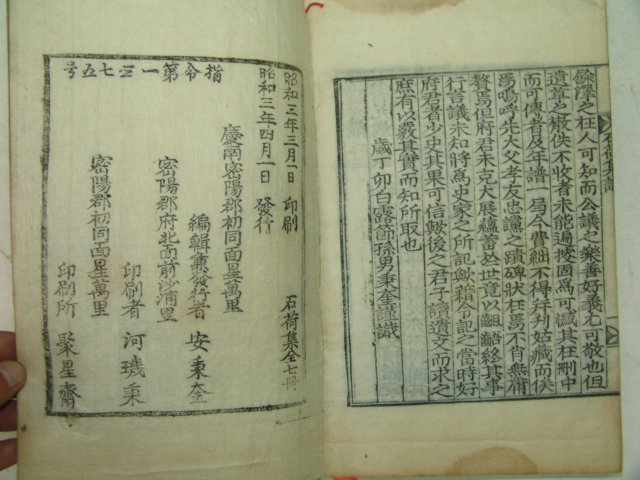 餘澤之在人可知而公議之樂善好義尤可敬也但
遺章之散佚不收者未能遍搜固爲可憾其在刪中
而可傳者及年譜一局今費絀不得幷刊姑藏而俟
焉嗚呼先大父孝友忠讜之蹟碑狀在焉不肖無庸
贅焉但府君未克大展蘊蓄於世竟以齟齬終其事
行言議未知將爲史家之所記歟藉令記之當時好
府君者少史其果可信歟後之君子讀遺文而求之
庶有以覈其實而知所取也
歲丁卯白露節孫男秉奎謹識
指令第一三七五号
昭和三年三月一日 印刷
昭和三年四月一日 發行
石荷集全七冊
慶南密陽郡初同面星萬里
編輯兼發行者 安秉奎
密陽郡府北面前沙浦里
印刷者 河璣秉
密陽郡初同面星萬里
印刷所 聚星齋